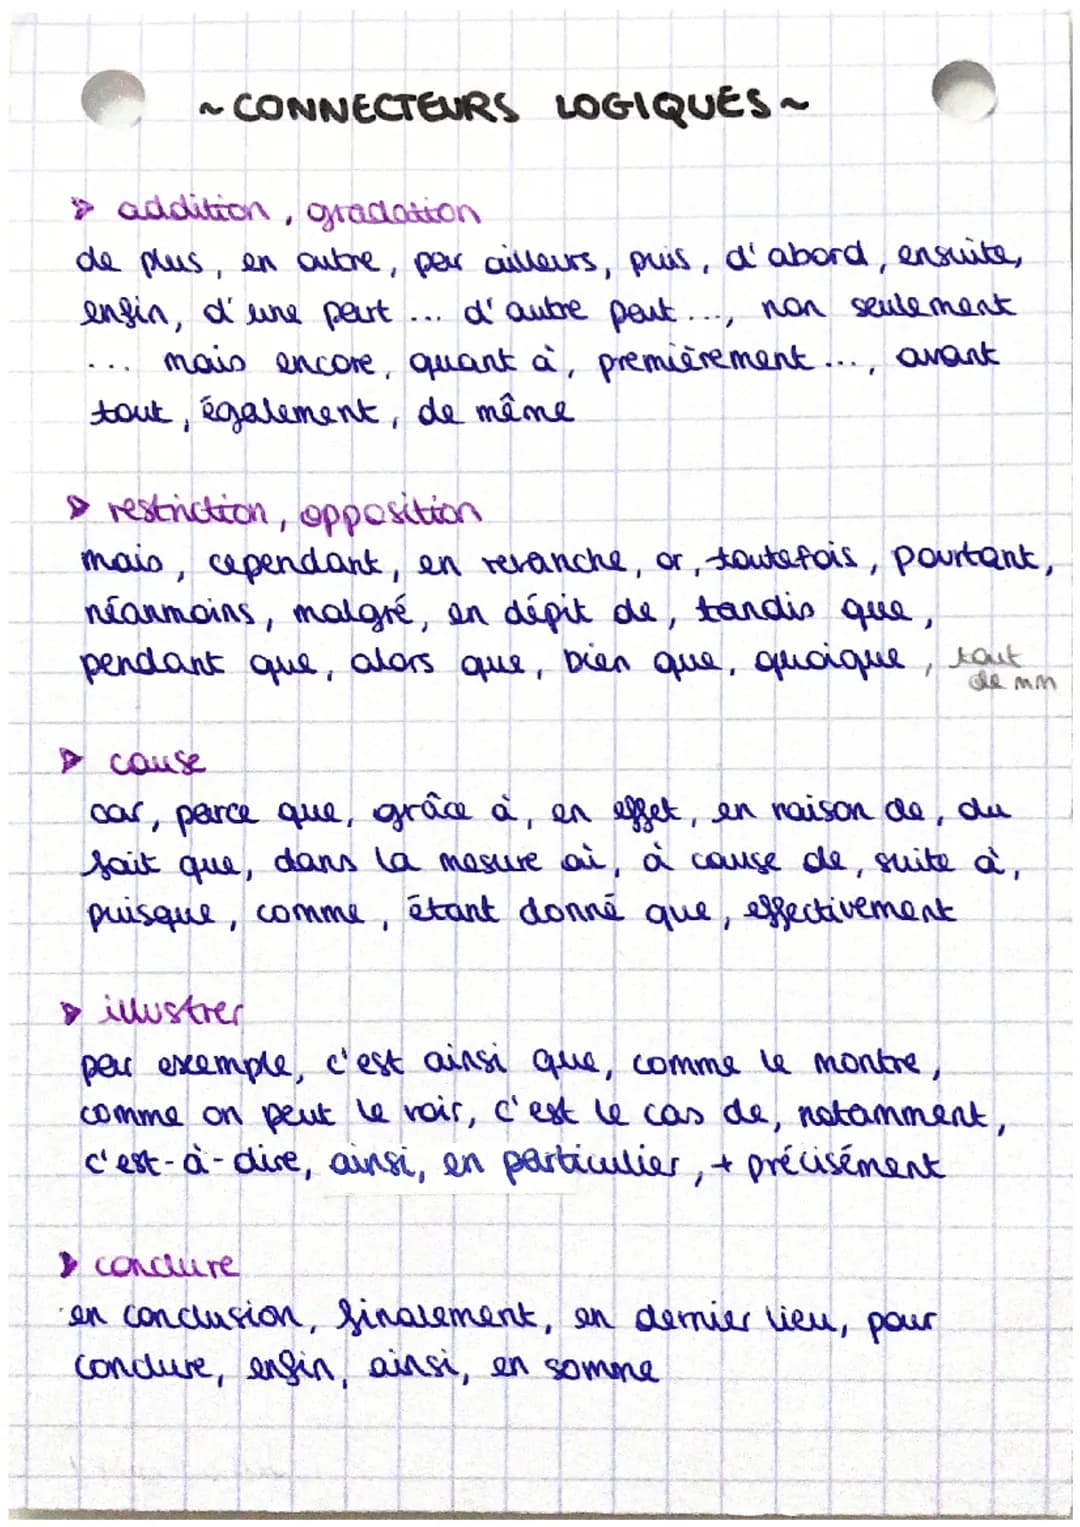 ~ CONNECTEURS LOGIQUES ~
addition, gradation
de plus, en outre, par ailleurs, puis, d'abord, ensuite,
enfin, d'une part ... d'autre part ..., non seulement
... mais encore, quant à, premièrement ..., avant
tout, également, de même
restriction, opposition
mais, cependant, en revanche, or, toutefois, pourtant,
néanmoins, malgré, en dépit de, tandis que,
pendant que, alors que, bien que, quoique, tout
de mm
cause
car, parce que, grâce à, en effet, en raison de, du
fait que, dans la mesure où, à cause de, suite à,
puisque, comme, étant donné que, effectivement
illustrer
par exemple, c'est ainsi que, comme le montre,
comme on peut le voir, c'est le cas de, notamment,
c'est-à-dire, ainsi, en particulier, + précisément
conclure
en conclusion, finalement, en dernier lieu, pour
conclure, enfin, ainsi, en somme